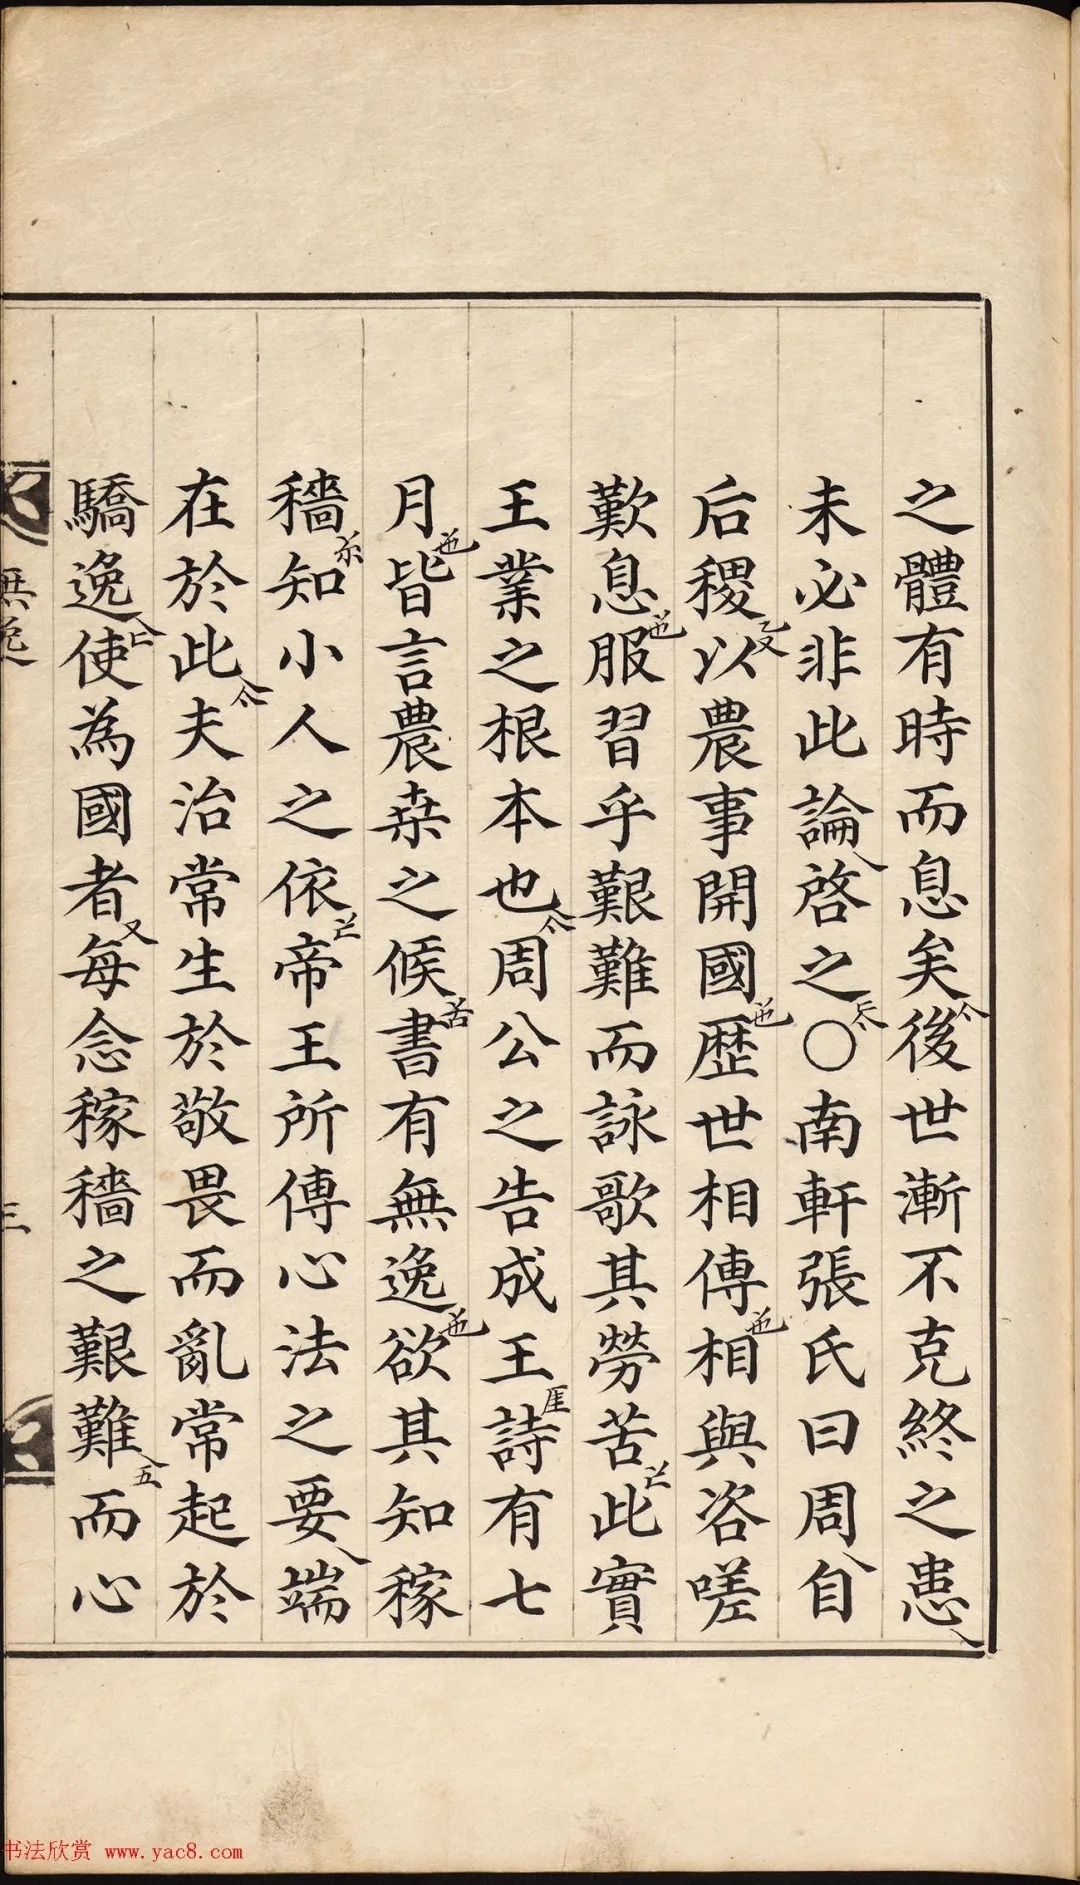 之體有時而息矣後世漸不克終之患
未必非此論啓之〇南軒張氏曰周自
后稷以農事開國歷世相傳相與咨嗟
歎息服習乎艱難而詠歌其勞苦此實
王業之根本也周公之告成王詩有七
月皆言農桒之候書有無逸欲其知稼
穡知小人之依帝王所傳心法之要端
在於此夫治常生於敬畏而亂常起於
驕逸使為國者每念稼穡之艱難而心
無逸
三
书法欣赏 www.yac8.com